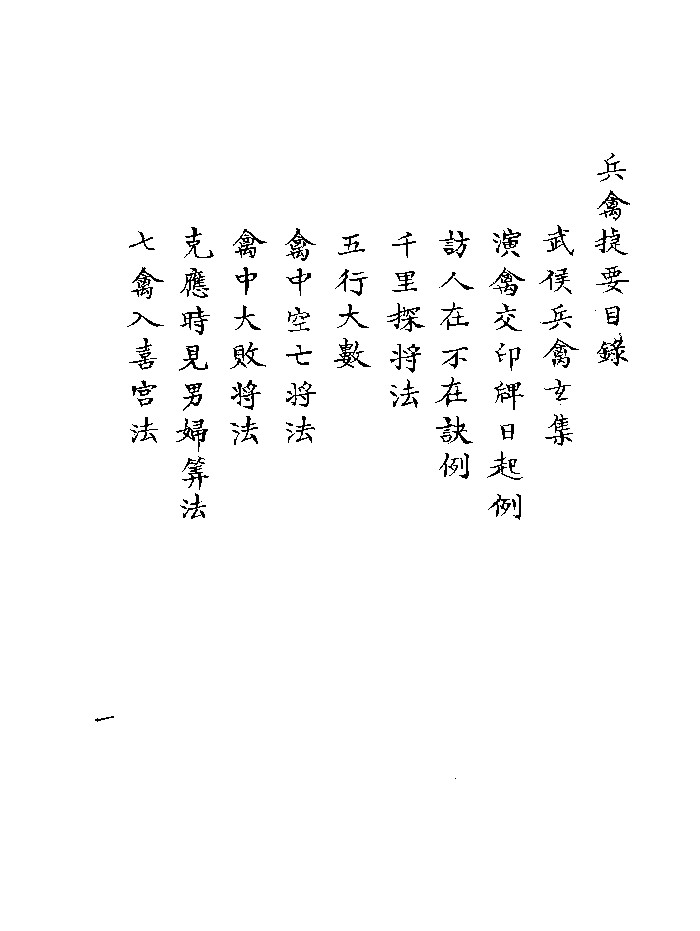 兵禽捷要目錄
武侯兵禽玄集
演禽交印牌日起例
訪人在不在訣例
千里探将法
五行大數
禽中空亡将法
禽中大敗将法
克應時見男婦筭法
七禽入喜宫法
一